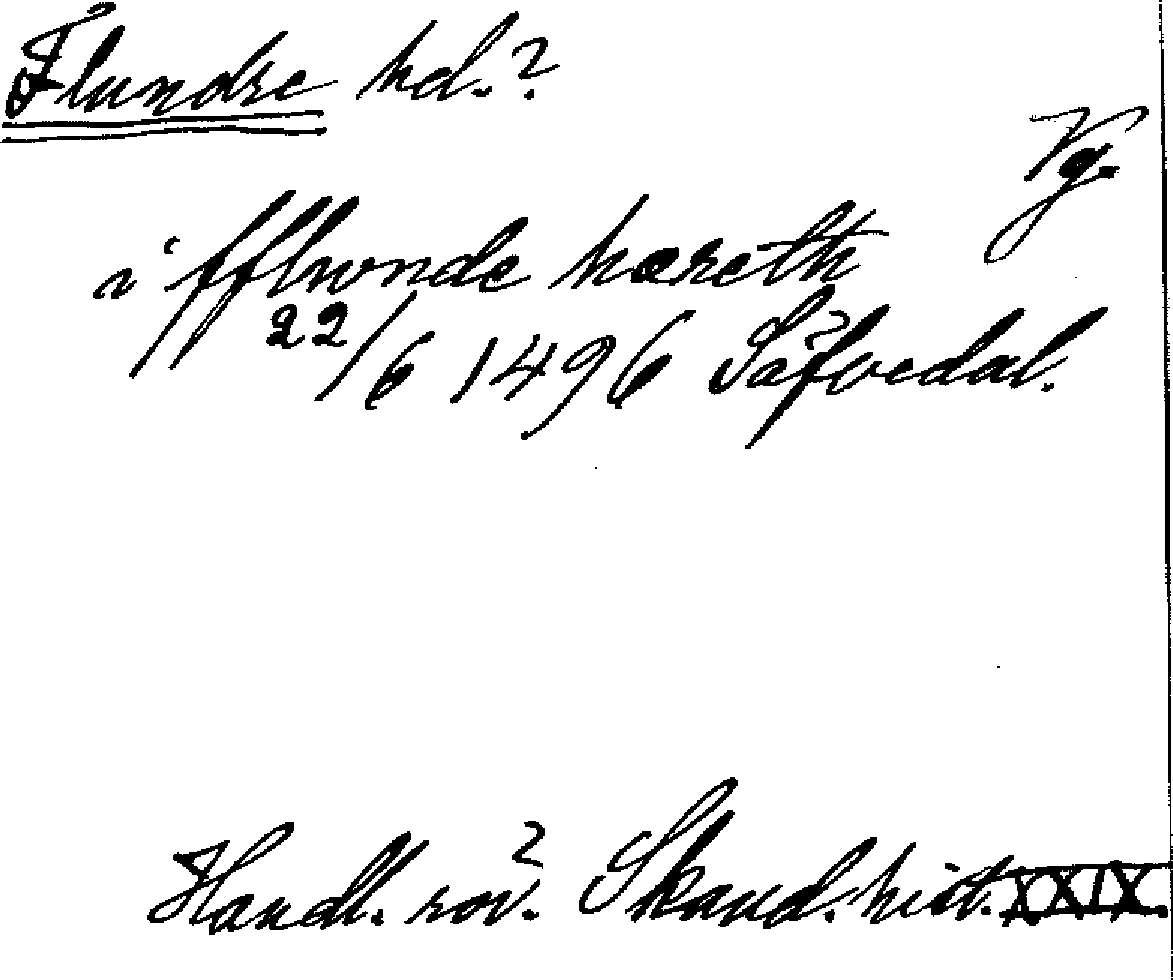 Flundre hd.?
Vg.
i fflwnde hæreth
22/6 1496 Säfvedal.
Handl. rör. Skand. hist. XXIX.